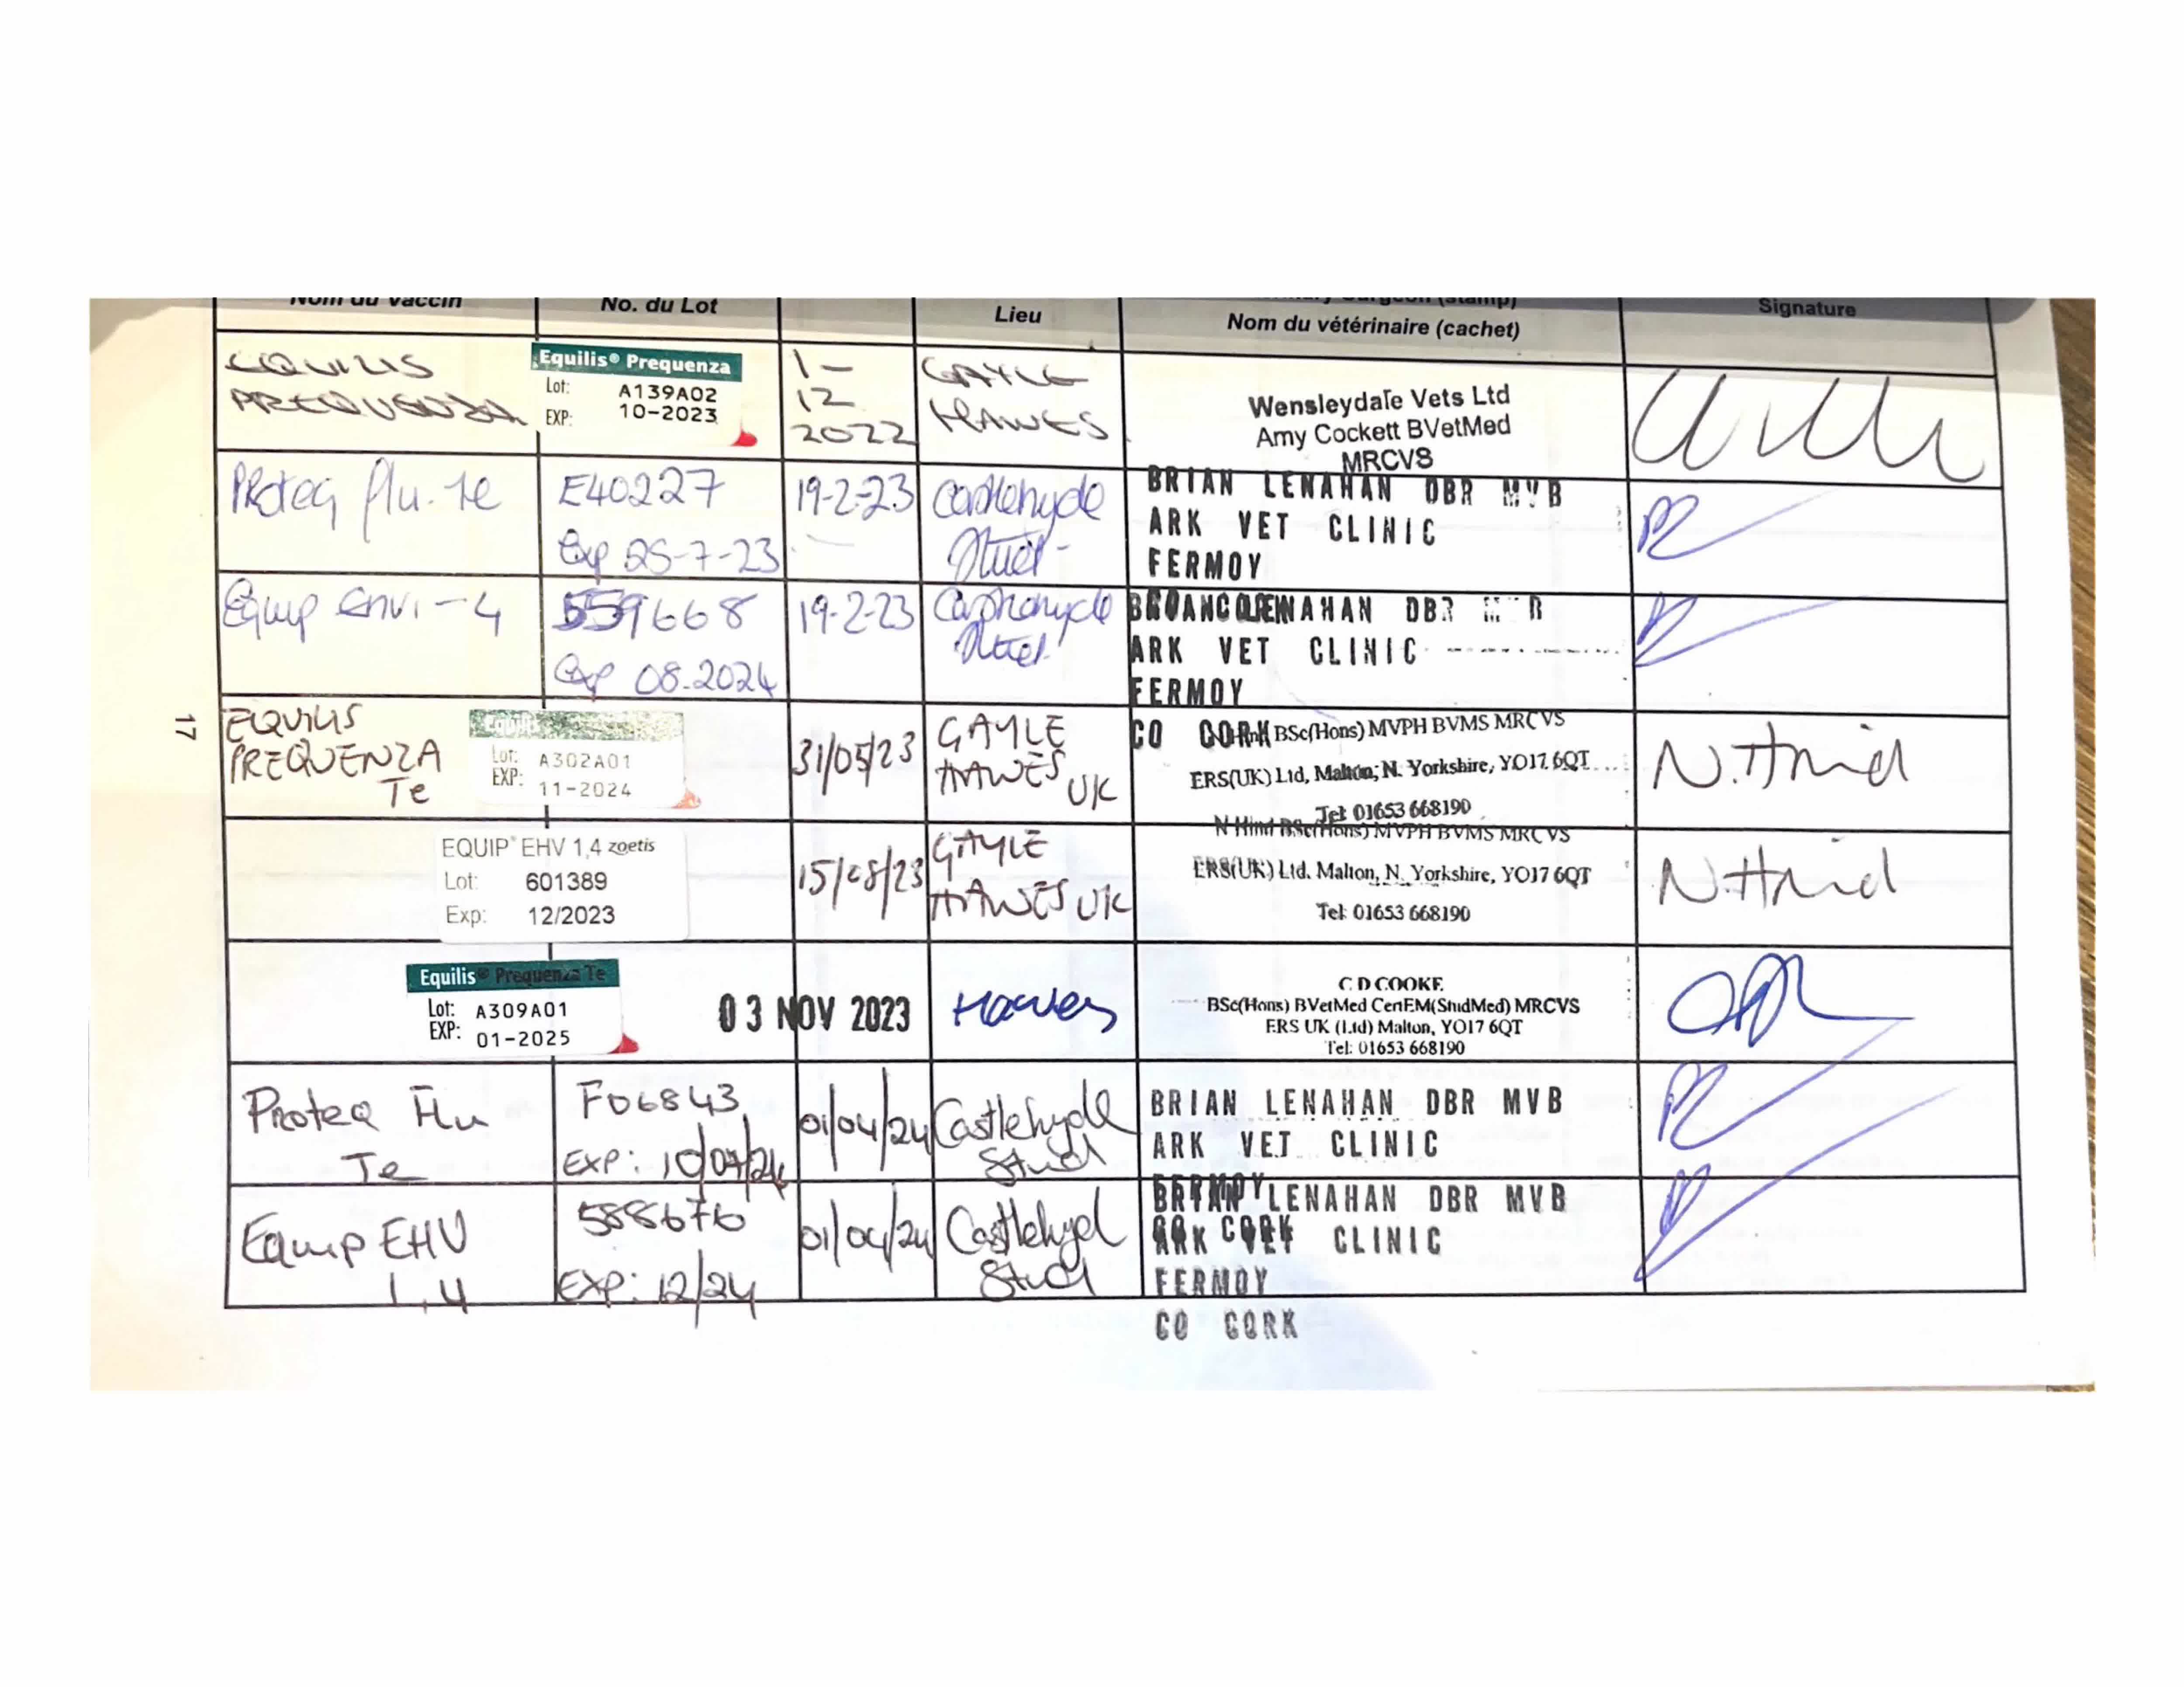 Nom du vaccin
No. du Lot
Lieu
Nom du vétérinaire (cachet)
Signature
EQUILIS
PREQUENZA
Equilis® Prequenza
Lot: A139A02
EXP: 10-2023
1-
12
2022
GAYLE
HAWES
Wensleydale Vets Ltd
Amy Cockett BVetMed
MRCVS
Proteq flu-te
E40227
Exp 25-7-23
19-2-23
Castlehyde
BRIAN LENAHAN DBR MVB
ARK VET CLINIC
FERMOY
Equip
5559668
Exp 08.2024
19-2-23
LENAHAN DBR
ARK VET CLINIC
FERMOY
CO CORK
EQUILIS
PREQUENZA
Te
Equilis
Lot: A302A01
EXP: 11-2024
31/05/23
GAYLE
HAWES
UK
BSc(Hons) MVPH BVMS MRCVS
ERS(UK) Ltd, Malton, N. Yorkshire, YO17 6QT
Tel: 01653 668190
N.Hind
EQUIP® EHV 1,4 zoetis
Lot: 601389
Exp: 12/2023
15/08/23
GAYLE
HAWES UK
N Hind BSc(Hons) MVPH BVMS MRCVS
ERS(UK) Ltd. Malton, N. Yorkshire, YO17 6QT
Tel: 01653 668190
N.Hind
Equilis® Prequenza Te
Lot: A309A01
EXP: 01-2025
03 NOV 2023
Hawes
C D COOKE
BSc(Hons) BVetMed CertEM(StudMed) MRCVS
ERS UK (Ltd) Malton, YO17 6QT
Tel: 01653 668190
Proteq Flu
Te
F06843
EXP: 10/07/24
01/04/24
Castlehyde
Stud
BRIAN LENAHAN DBR MVB
ARK VET CLINIC
FERMOY
CO CORK
Equip EHV
1,4
588676
EXP: 12/24
01/04/24
Castlehyd
Stud
BRIAN LENAHAN DBR MVB
ARK VET CLINIC
FERMOY
CO CORK
17